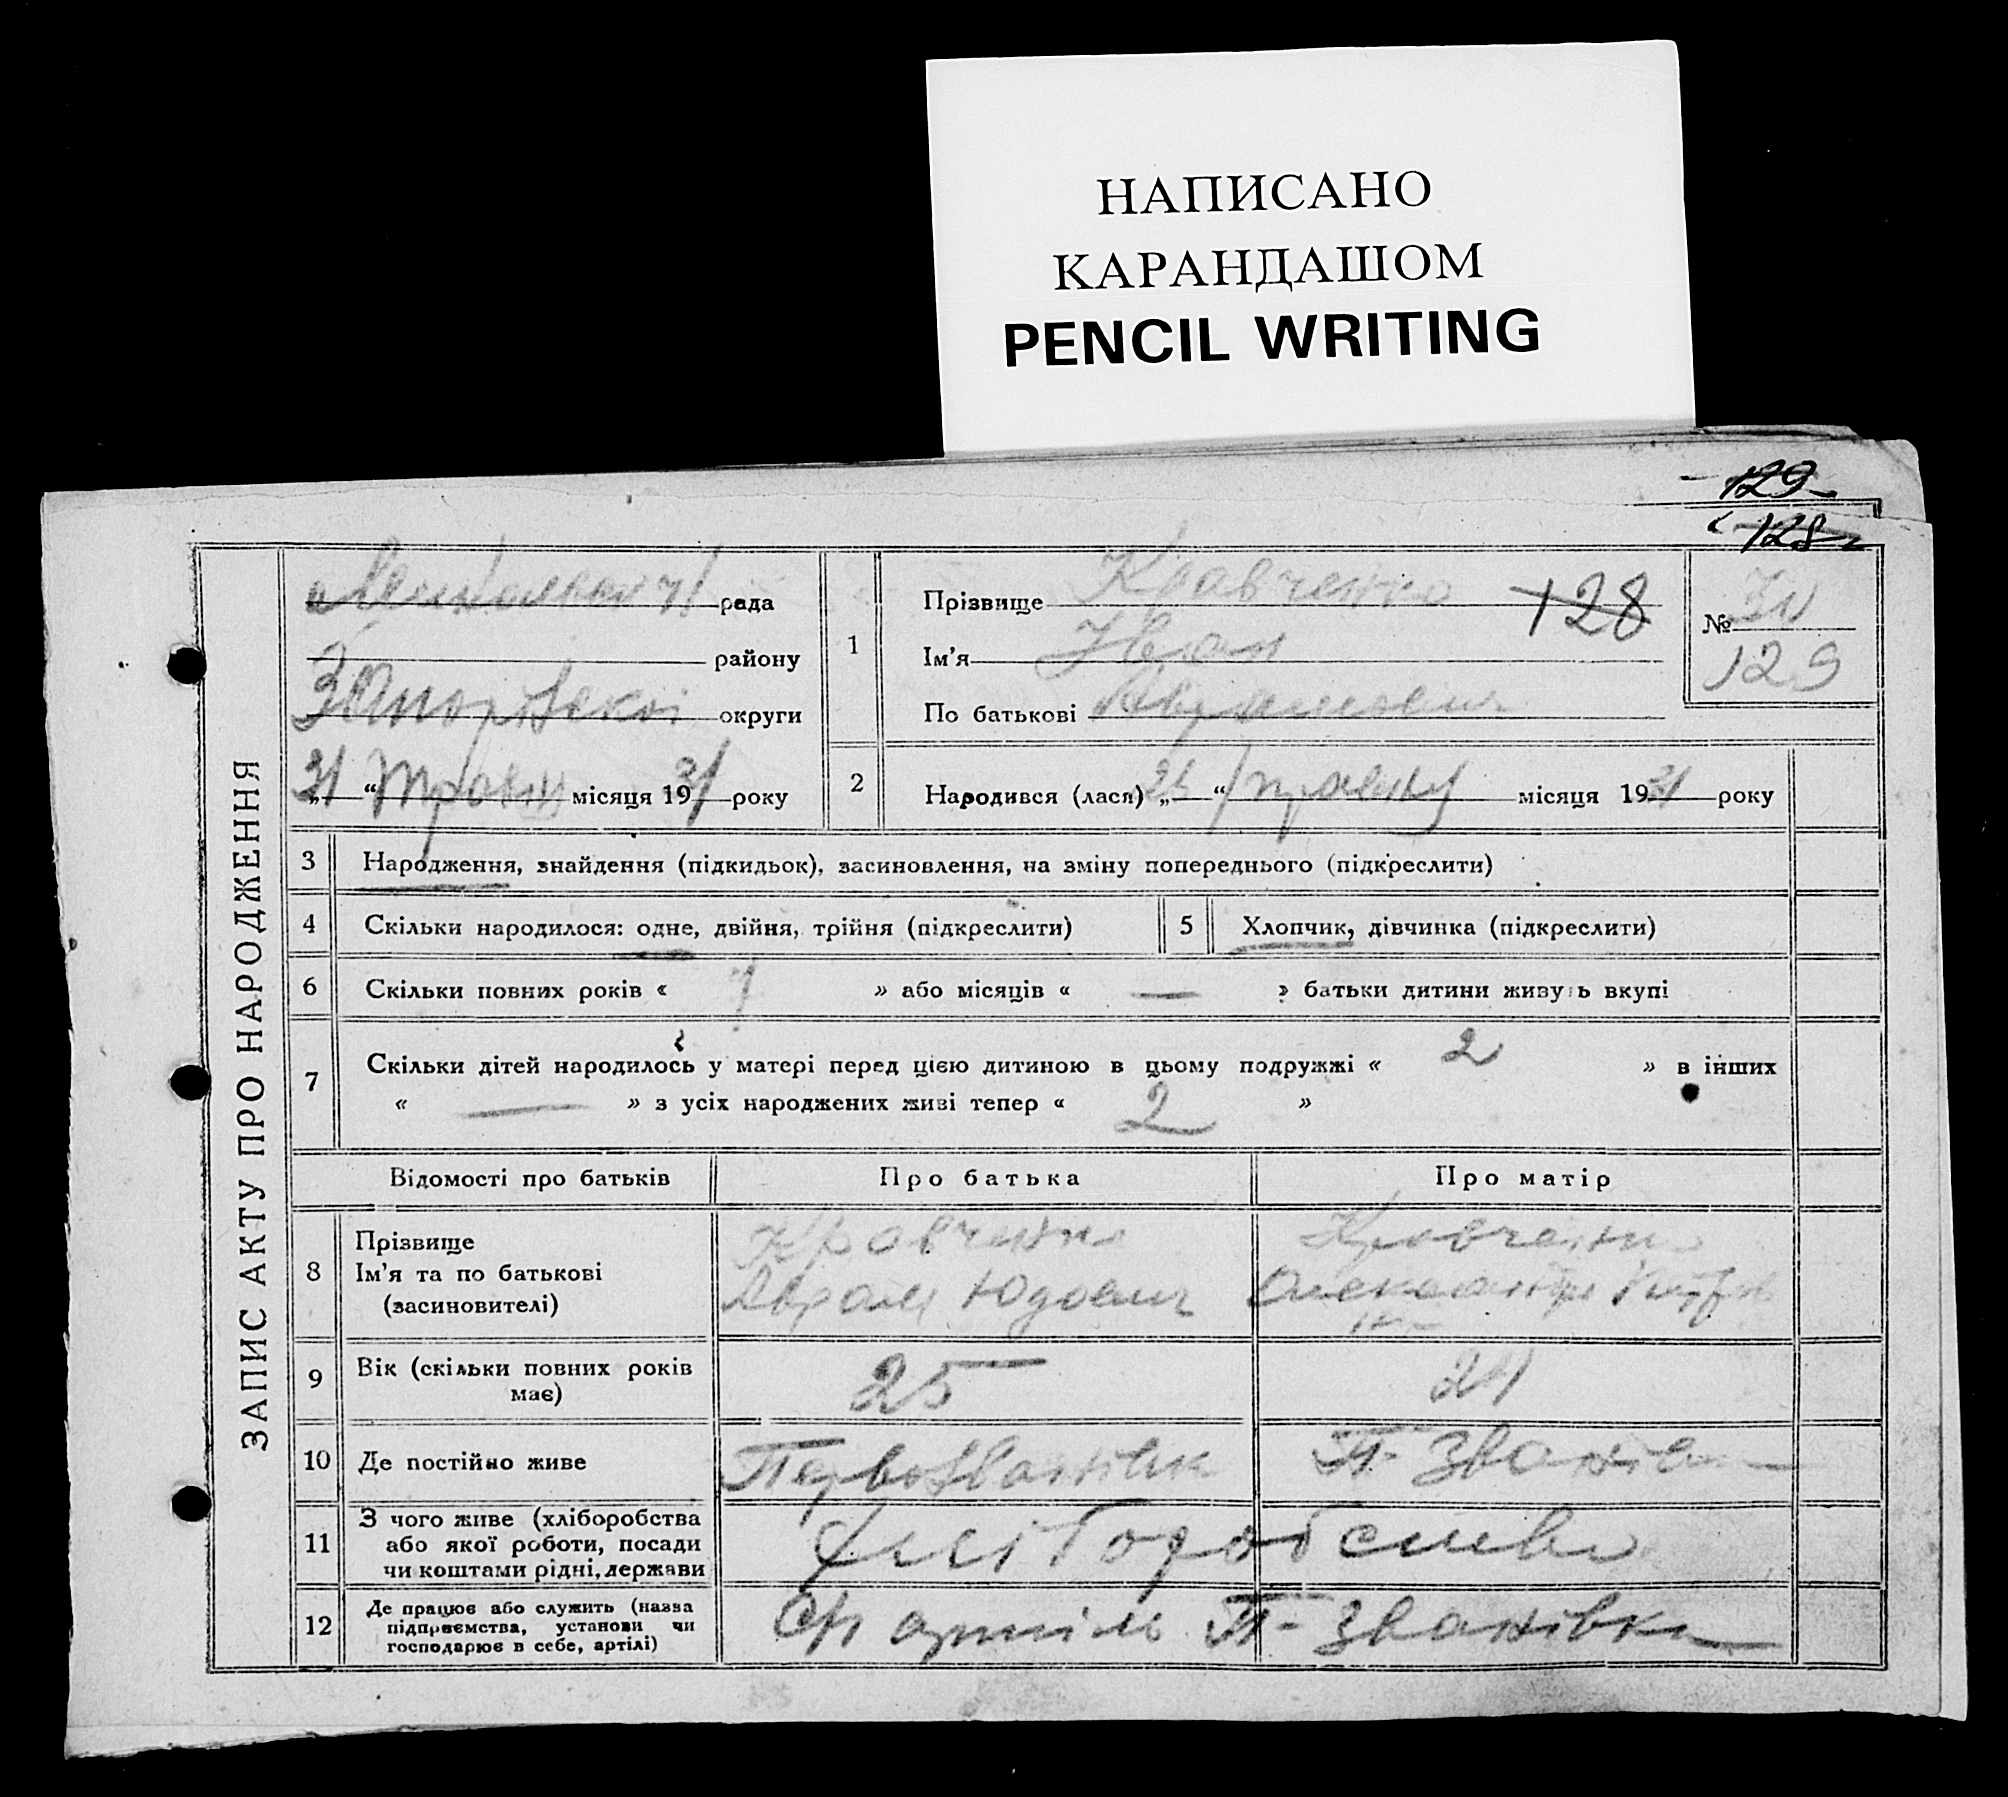 НАПИСАНО
КАРАНДАШОМ
PENCIL WRITING
129
128
ЗАПИС АКТУ ПРО НАРОДЖЕННЯ
рада
району
округи
31 “ травня місяця 1931 року
1
Прізвище Кравченко 128
Ім’я Иван
По батькові Аврамович
№
129
2
Народився (лася) „ “ травня місяця 1931 року
3 Народження, знайдення (підкидьок), засиновлення, на зміну попереднього (підкреслити)
4 Скільки народилося: одне, двійня, трійня (підкреслити)
5 Хлопчик, дівчинка (підкреслити)
6 Скільки повних років « » або місяців « — » батьки дитини живуть вкупі
7 Скільки дітей народилось у матері перед цією дитиною в цьому подружжі « 2 » в інших
« — » з усіх народжених живі тепер « 2 »
Відомості про батьків
Про батька
Про матір
8 Прізвище
Ім’я та по батькові
(засиновителі)
Кравченко
Аврам Юдович
Кравченко
Олександра
9 Вік (скільки повних років
має)
25
10 Де постійно живе
П-Званівка
11 З чого живе (хліборобства
або якої роботи, посади
чи коштами рідні, держави
Хліборобством
12 Де працює або служить (назва
підприємства, установи чи
господарює в себе, артілі)
артіль П-Званівка